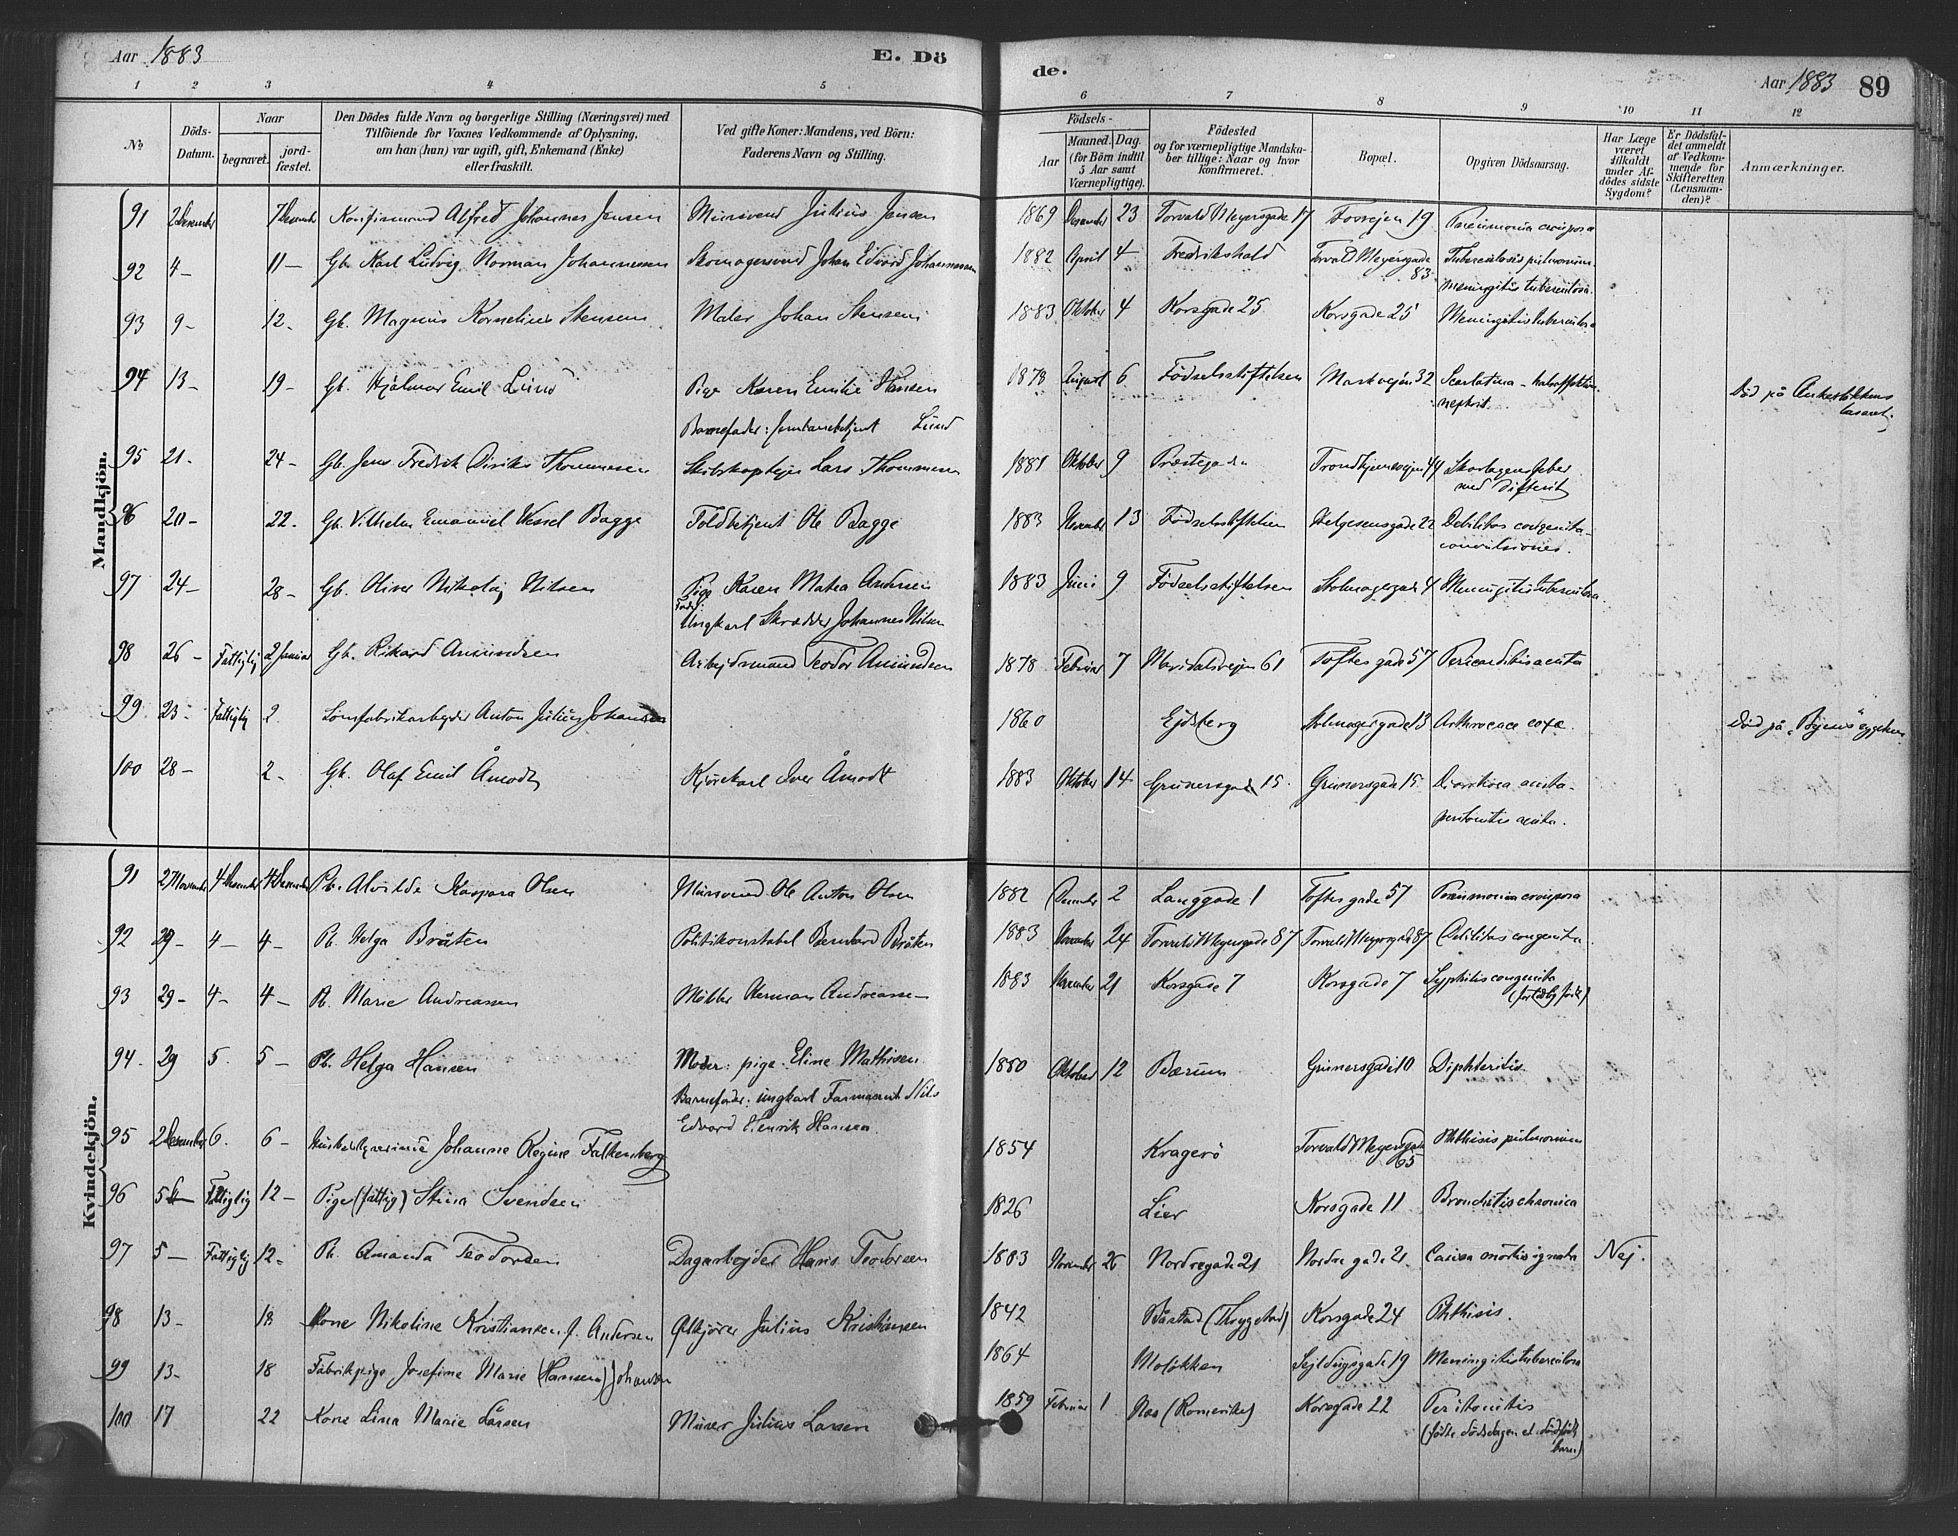 Aar 1883
E. Dö
de.
Aar 1883
89
1 2 3 4 5 6 7 8 9 10 11 12
No
Döds-Datum.
Naar
begravet.
jord-fæstet.
Den Dödes fulde Navn og borgerlige Stilling (Næringsvei) med
Tilföiende for Voxnes Vedkommende af Oplysning,
om han (hun) var ugift, gift, Enkemand (Enke)
eller fraskilt.
Ved gifte Koner: Mandens, ved Börn:
Faderens Navn og Stilling.
Födsels-
Aar
Maaned. Dag.
(for Börn indtil
5 Aar samt
Værnepligtige).
Födested
og for værnepligtige Mandska-
ber tillige: Naar og hvor
konfirmeret.
Bopæl.
Opgiven Dödsaarsag.
Har Læge
været
tilkaldt
under Af-
dödes sidste
Sygdom?
Er Dödsfal-
det anmeldt
af Vedkom-
mende for
Skifteretten
(Lensman-
den)?
Anmærkninger.
Mandkjön.
91 2 Desember 7 Desember Konfirmand Alfred Johannes Jensen Mursvend Julius Jensen 1869 Desember 23 Torvald Meyersgade 17 Fossvejen 19 Pneumonia crouposa
92 4 – 11 – Gb. Karl Ludvig Norman Johannessen Skomagersvend Johan Edvard Johannessen 1882 April 4 Fredrikshald Torvald Meyersgade 83 Tuberculosis pulmonum.
meningitis tuberculosa.
93 9 – 12 – Gb. Magnus Kornelius Stensen Maler Johan Stensen 1883 Oktober 4 Korsgade 25 Korsgade 25 Meningitis tuberculosa
94 13 – 19 – Gb. Hjalmar Emil Lund Pige Karen Emilie Hansen 1878 August 6 Födselsstiftelsen Markvejen 32 Scarlatina –
nephrit. Död på Ankerløkkens
lasaret
Barnefader: Jernbanebetjent Lund
95 21 – 24 – Gb. Jens Fredrik Thommesen Skibskaptejn Lars Thommesen 1881 Oktober 9 Præstegaden Trondhjemsvejen 44 Skarlagensfeber
med difterit
96 20 – 22 – Gb. Vilhelm Emanuel Wessel Bagge Toldbetjent Ole Bagge 1883 November 13 Födselsstiftelsen Helgesensgade 22 Debilitas congenita
convulsiones.
97 24 – 28 – Gb. Oliver Nikolaj Nilsen Pige Karen Matea Andersen 1883 Juni 9 Födselsstiftelsen Stolmagergade 4 Meningitis tuberculosa.
Fader:
Ungkarl Skrædder Johannes Nilsen
98 26 – Fattiglig 2 Januar Gb. Rikard Amundsen Arbejdsmand Teodor Amundsen 1878 Februar 7 Maridalsvejen 61 Toftes gade 57 Pericarditis acuta
99 23 – Fattiglig 2 Sömfabrikarbejder Anton Julius Johansen 1860 Ejdsberg Stolmagergade 13 Arthrocace coxæ. Död på „Byens" sygehus
100 28 – 2 – Gb. Olaf Emil Åmodt Kjörekarl Iver Åmodt 1883 Oktober 14 Grünersgade 15. Grünersgade 15 Diarrhoea acuta –
peritonitis acuta.
Kvindekjön.
91 27 November 4 Desember 4 Desember Pb. Alvilde Kaspara Olsen Mursvend Ole Anton Olsen 1882 Desember 2 Langgade 1 Toftes gade 57 Pneumonia crouposa
92 29 – 4 – 4 – Pb. Helga Bråten Politikonstabel Bernhard Bråten 1883 November 24 Torvald Meyersgade 87 Torvald Meyersgade 87 Debilitas congenita.
93 29 – 4 – 4 – Pb. Marie Andreassen Möller Herman Andreassen 1883 November 21 Korsgade 7 Korsgade 7 Syphilis congenita
(fortidlig födt)
94. 29 5. 5 – Pb. Helga Hansen Moder: pige Eline Mathisen 1880 Oktober 12 Bærum Grünersgade 10 Diphteritis.
Barnefader: ungkarl Farmaceut Nils
Edvard Henrik Hansen.
95 2 Desember 6. 6 – Husbestyrerinde Johanne Regine Falkenberg 1854 Kragerö Torvald Meyersgade 65 Phthisis pulmonum
96 5 – Fattiglig 12 – Pige (fattig) Stina Svendsen 1826 Lier Korsgade 11 Bronchitis chronica
97 5 – Fattiglig 12 – Pb. Amanda Teodorsen Dagarbejder Hans Teodorsen 1883 November 26 Nordregade 21 Nordre gade 21. Causa mortis ignota Nej.
98 13 – 18 Kone Nikoline Kristiansen f. Andersen Ölkjörer Julius Kristiansen 1842 Båstad (Trygstad) Korsgade 24 Phthisis.
99 13 – 18 Fabrikpige Josefine Marie (Hansen) Johansen 1864 Moløkken Sejldugsgade 19 Meningitis tuberculosa
100 17 22 Kone Lina Marie Larsen Murer Julius Larsen 1859 Februar 1 Nes (Romerike) Korsgade 22 Peritonitis
(födte dödsdagen et dödfödt
barn)